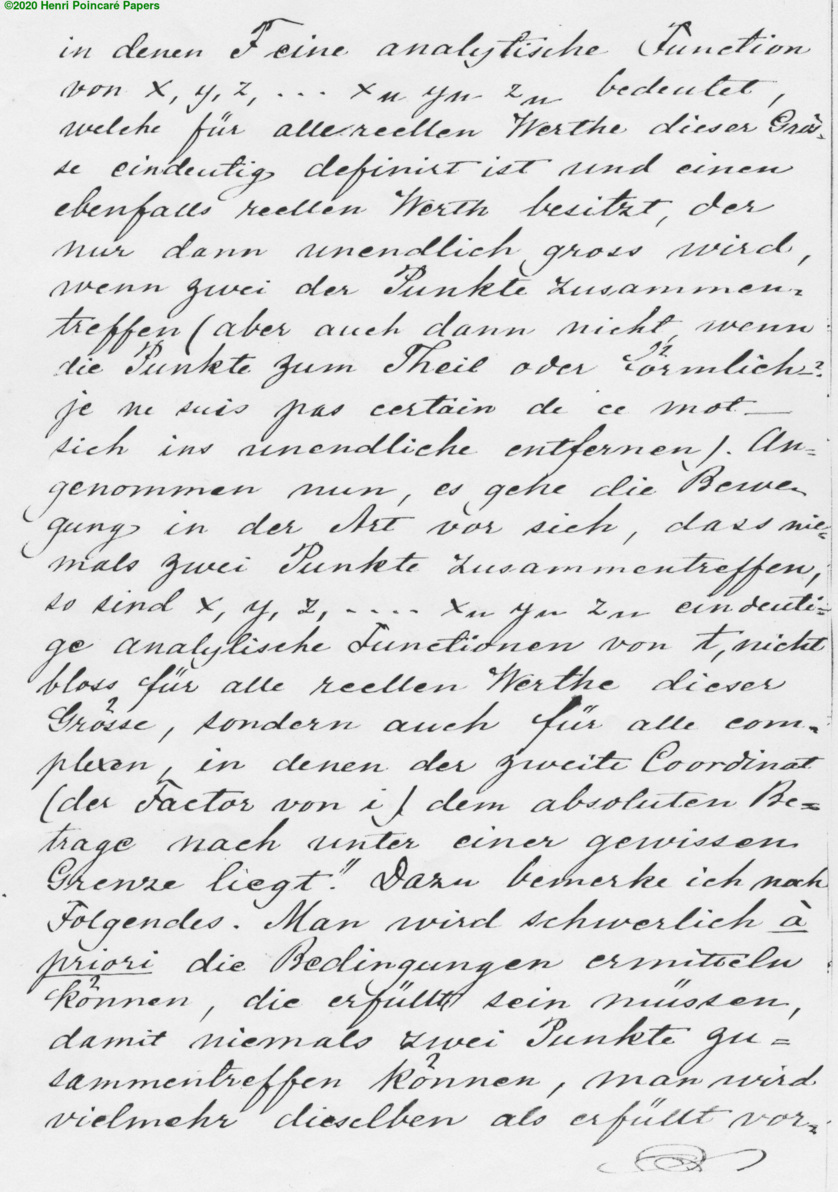 ©2020 Henri Poincaré Papers
in denen F eine analytische Function
von x, y, z, ... xn yn zn bedeutet,
welche für alle reellen Werthe dieser Grös-
se eindeutig definirt ist und einen
ebenfalls reellen Werth besitzt, der
nur dann unendlich gross wird,
wenn zwei der Punkte zusammen-
treffen (aber auch dann nicht, wenn
die Punkte zum Theil oder förmlich-?
je ne suis pas certain de ce mot —
sich ins unendliche entfernen). An-
genommen nun, es gehe die Bewe-
gung in der Art vor sich, dass nie-
mals zwei Punkte zusammentreffen,
so sind x, y, z, .... xn yn zn eindeuti-
ge analytische Functionen von t, nicht
bloss für alle reellen Werthe dieser
Grösse, sondern auch für alle com-
plexen, in denen der zweite Coordinat
(der Factor von i) dem absoluten Be-
trage nach unter einer gewissen
Grenze liegt." Dazu bemerke ich noch
Folgendes. Man wird schwerlich à
priori die Bedingungen ermitteln
können, die erfüllt sein müssen,
damit niemals zwei Punkte zu-
sammentreffen können, man wird
vielmehr dieselben als erfüllt vor-